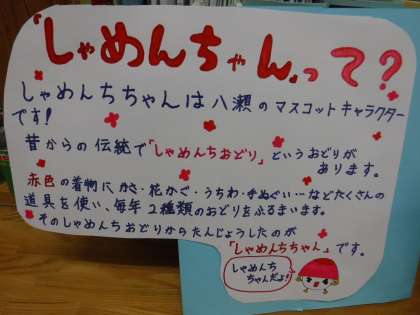 『しゃめんちゃん』って？
しゃめんちちゃんは八瀬のマスコットキャラクター
です!
昔からの伝統で「しゃめんちおどり」というおどりが
あります。
赤色の着物に、かさ・花かご・うちわ・手ぬぐい…などたくさんの
道具を使い、毎年2種類のおどりをふるまいます。
そのしゃめんちおどりからたんじょうしたのが
「しゃめんちちゃん」です。
しゃめんち
ちゃんだよ!